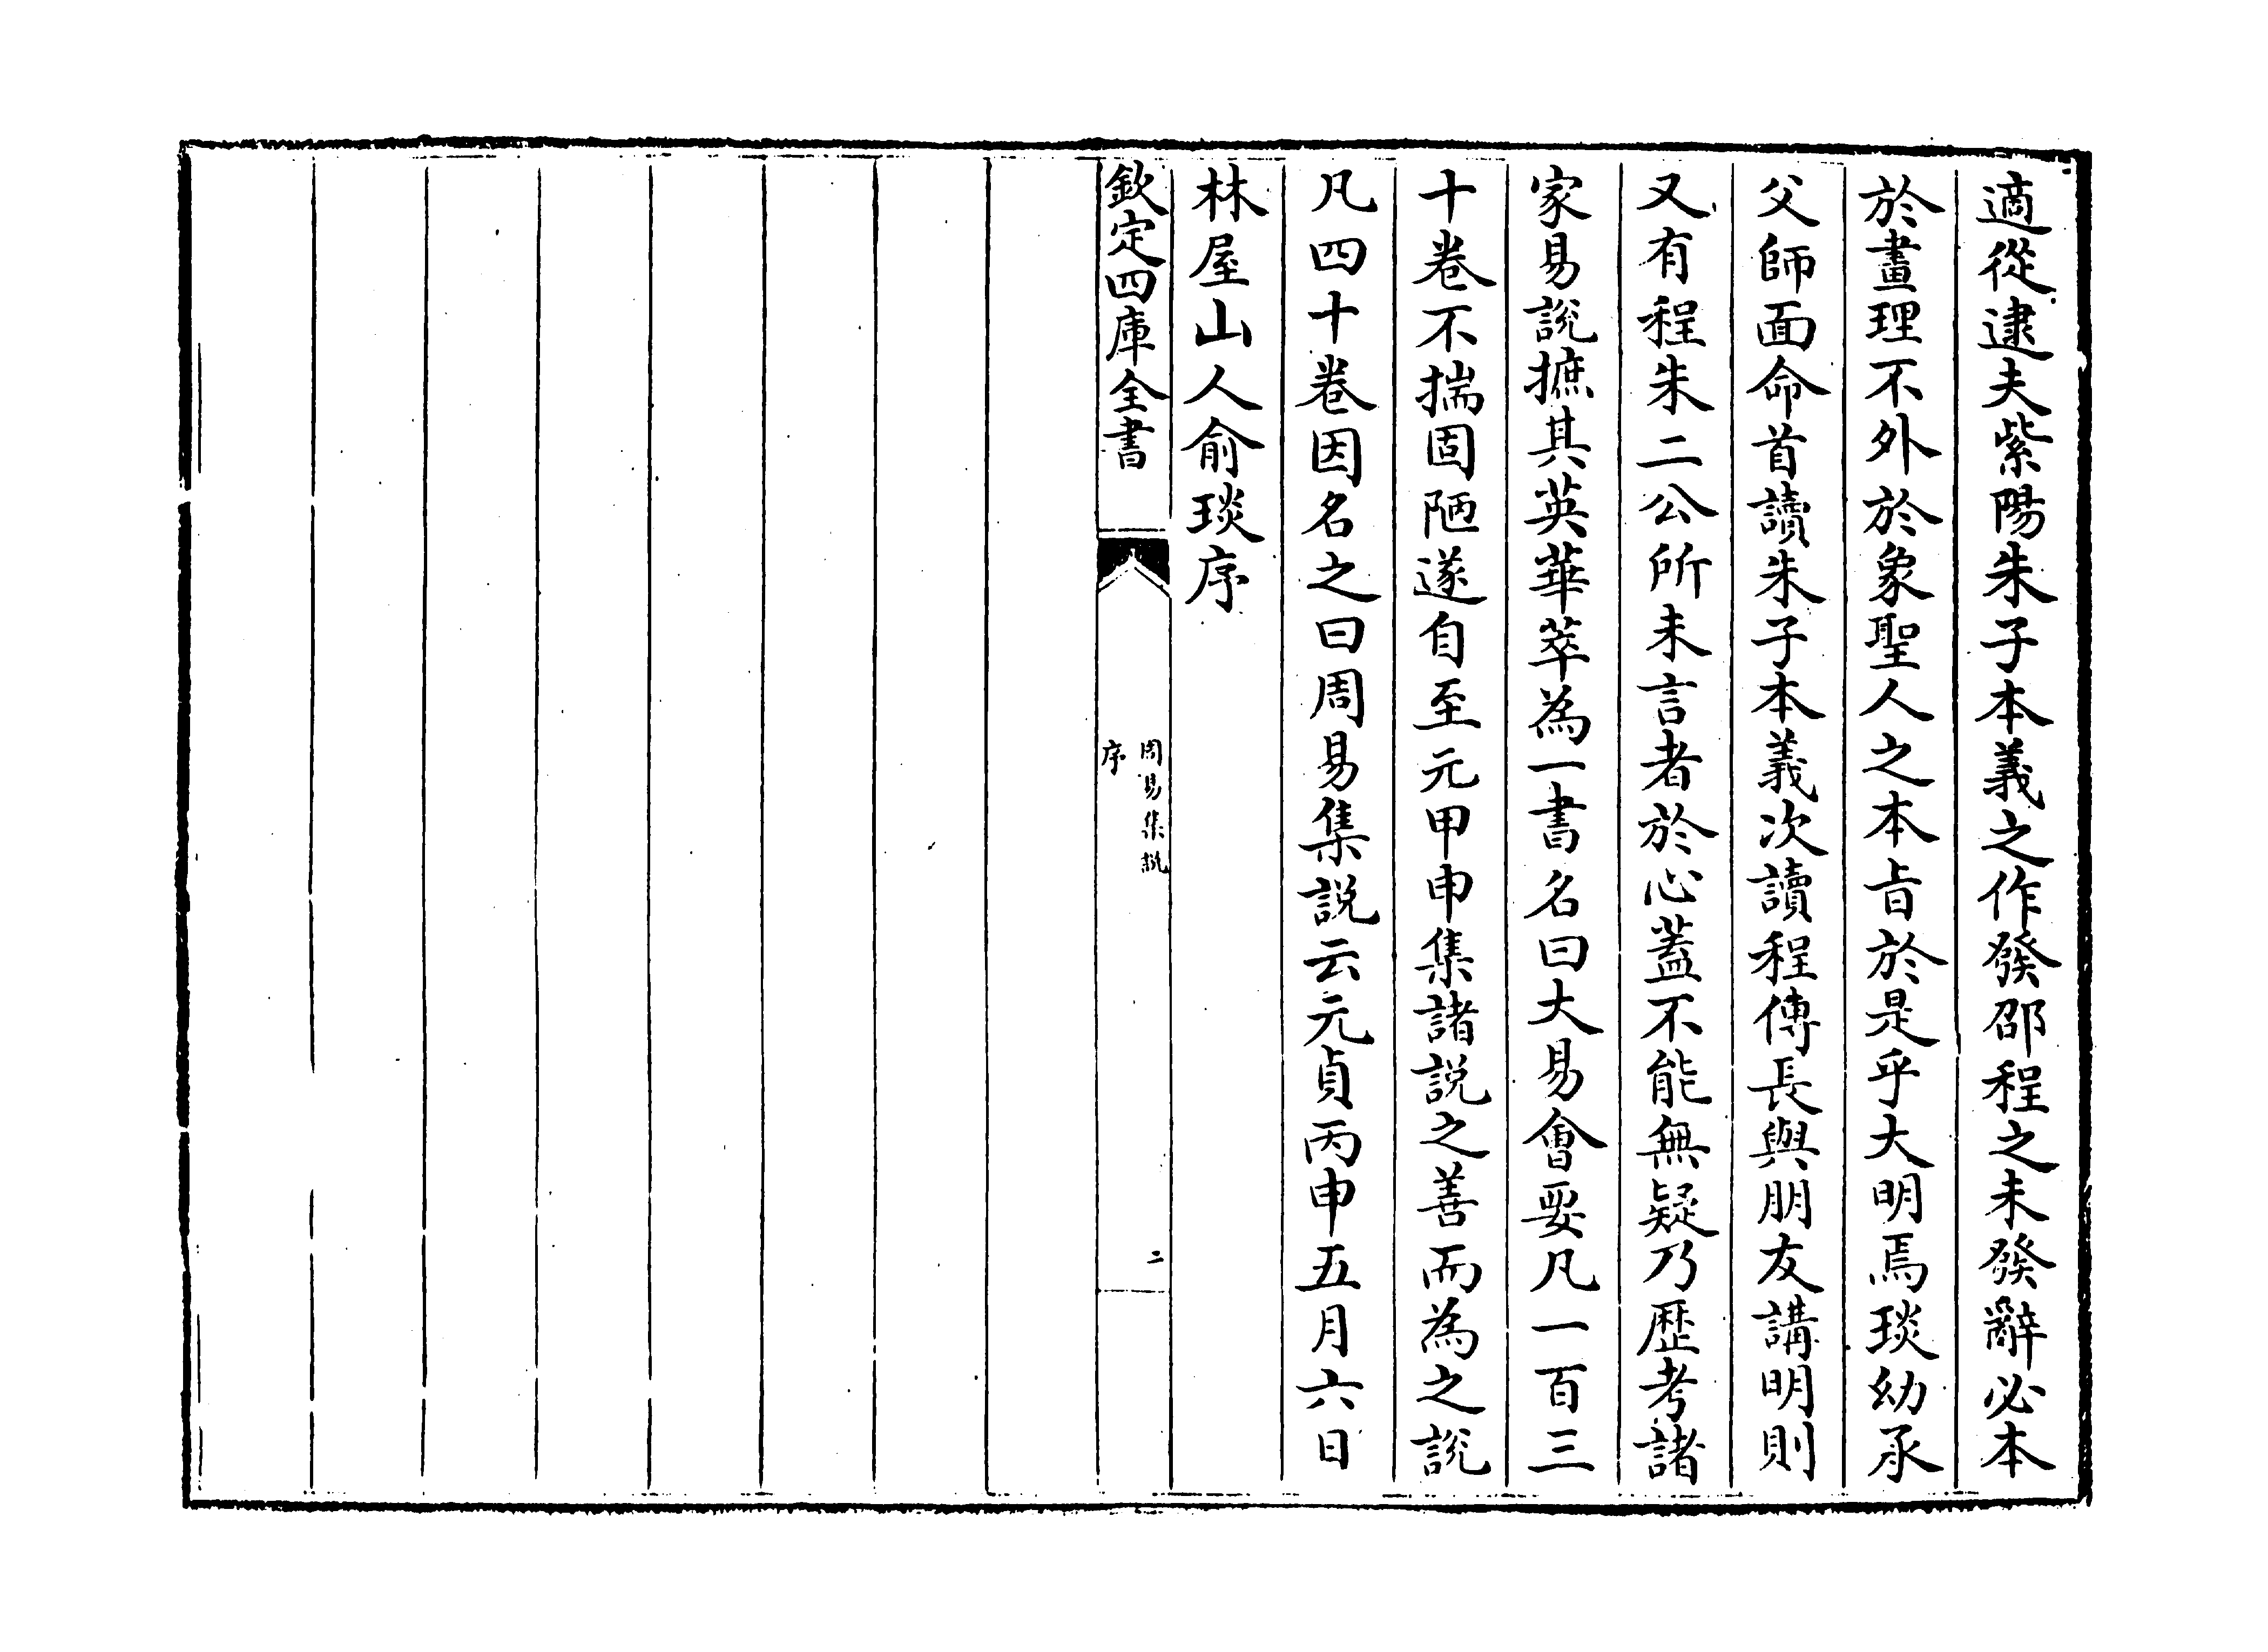 適從逮夫紫陽朱子本義之作發邵程之未發辭必本
於畫理不外於象聖人之本旨於是乎大明焉琰幼承
父師面命首讀朱子本義次讀程傳長與朋友講明則
又有程朱二公所未言者於心蓋不能無疑乃歷考諸
家易説摭其英華萃為一書名曰大易會要凡一百三
十卷不揣固陋遂自至元甲申集諸説之善而為之説
凡四十卷因名之曰周易集説云元貞丙申五月六日
林屋山人俞琰序
欽定四庫全書
周易集説
序
二